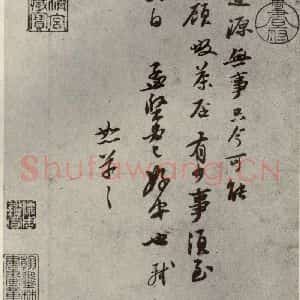 道源無事只今可能
顧啜茶否有少事須至
白孟堅必已好安也軾
恕草草
Shufawang.CN